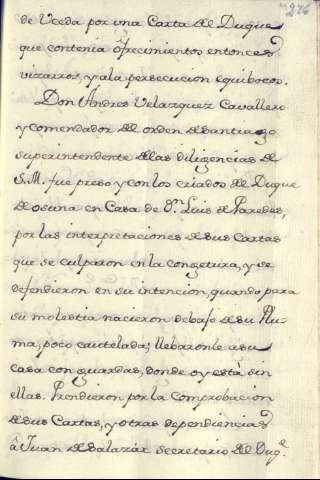 276
de Uceda por una Carta del Duque
que contenia ofrecimientos entonces
vizarros, y ala persecucion equibocos.
Don Andres Velazquez Cavallero
y comendador del orden de Santiago
superintendente delas diligencias de
S.M. fue preso y con los criados del Duque
de osuna en Casa de Dn. Luis de Paredes,
por las interpretaciones de sus Cartas
que se culparon en la congetura, y se
defendieron en su intencion, quando para
su molestia nacieron debajo de su Plu-
ma, poco cautelada; llebaronle a su
casa con guardas, donde oy està sin
ellas. Prendieron por la comprobacion
de sus Cartas, y otras dependiencias
â Juan de Salazár secretario del Duqe.